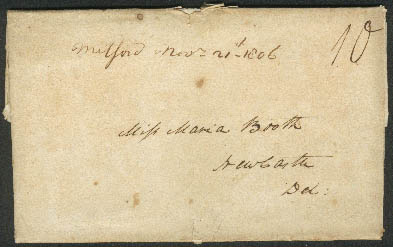 Milford Novr 21st 1806
10
Miss Maria Booth
NewCastle
Del: